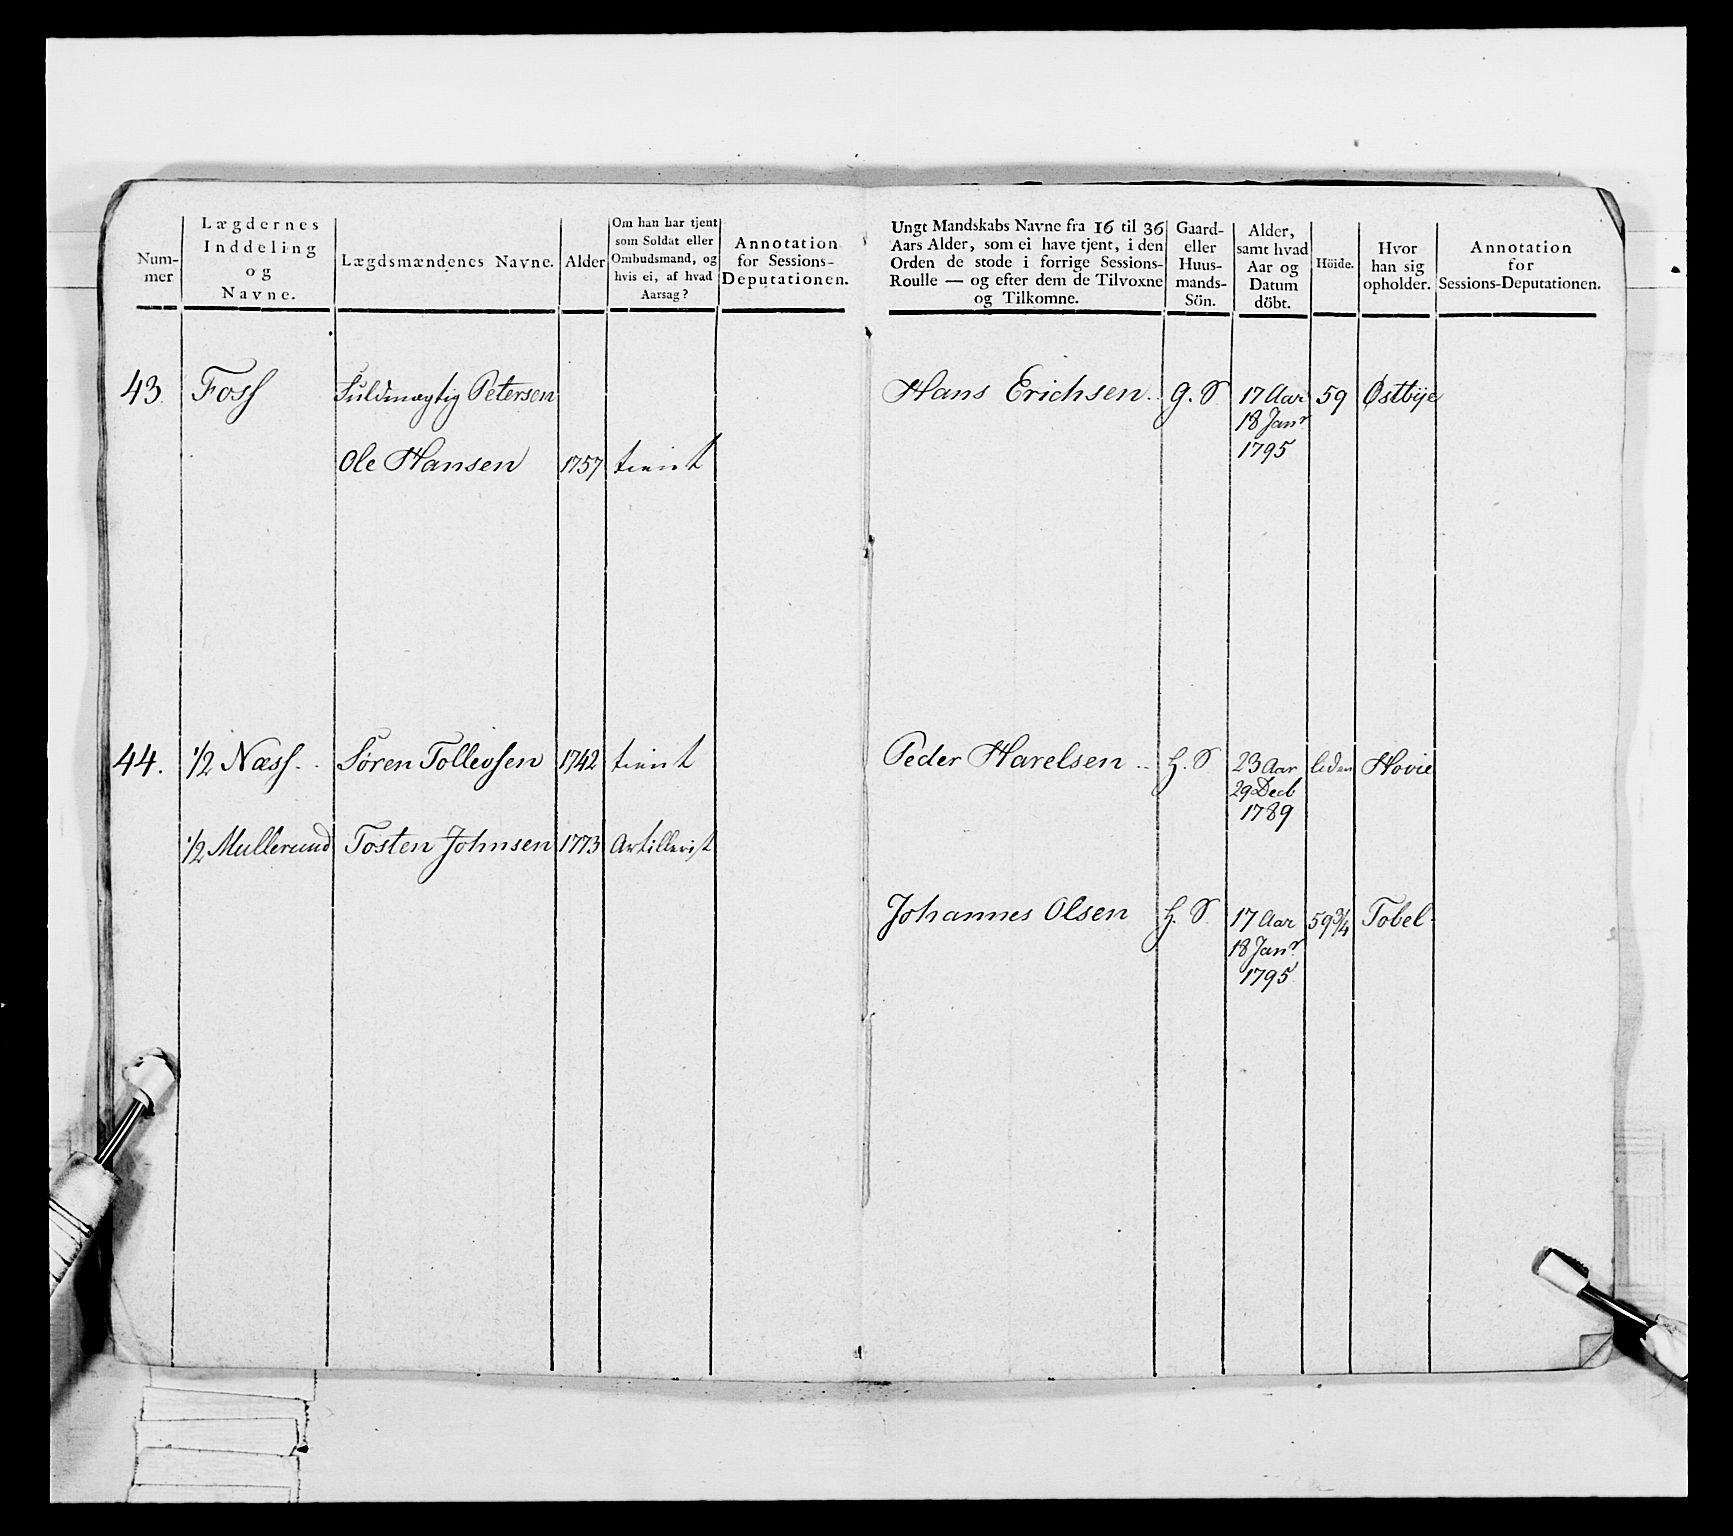 Num-
mer
Lægdernes
Inddeling
og
Navne.
Lægdsmændenes Navne.
Alder
Om han har tjent
som Soldat eller
Ombudsmand, og
hvis ei, af hvad
Aarsag?
Annotation
for Sessions-
Deputationen.
43
Foss
Fuldmægtig Petersen
Ole Hansen 1757 tient
44. 1/2 Næss Søren Tollevsen 1742 tient
1/2 Mullerund Tosten Johnsen 1773 Artillerist
Ungt Mandskabs Navne fra 16 til 36
Aars Alder, som ei have tjent, i den
Orden de stode i forrige Sessions-
Roulle — og efter dem de Tilvoxne
og Tilkomne.
Gaard-
eller
Huus-
mands-
Sön.
Alder,
samt hvad
Aar og
Datum
döbt.
Höide.
Hvor
han sig
opholder.
Annotation
for
Sessions-Deputationen.
Hans Erichsen G. S 17 Aar 59 Østbye
18 Janr
1795
Peder Harelsen H. S 23 Aar liden Hovie
29 Decb
1789
Johannes Olsen H. S 17 Aar 59 3/4 Tobel
18 Janr
1795